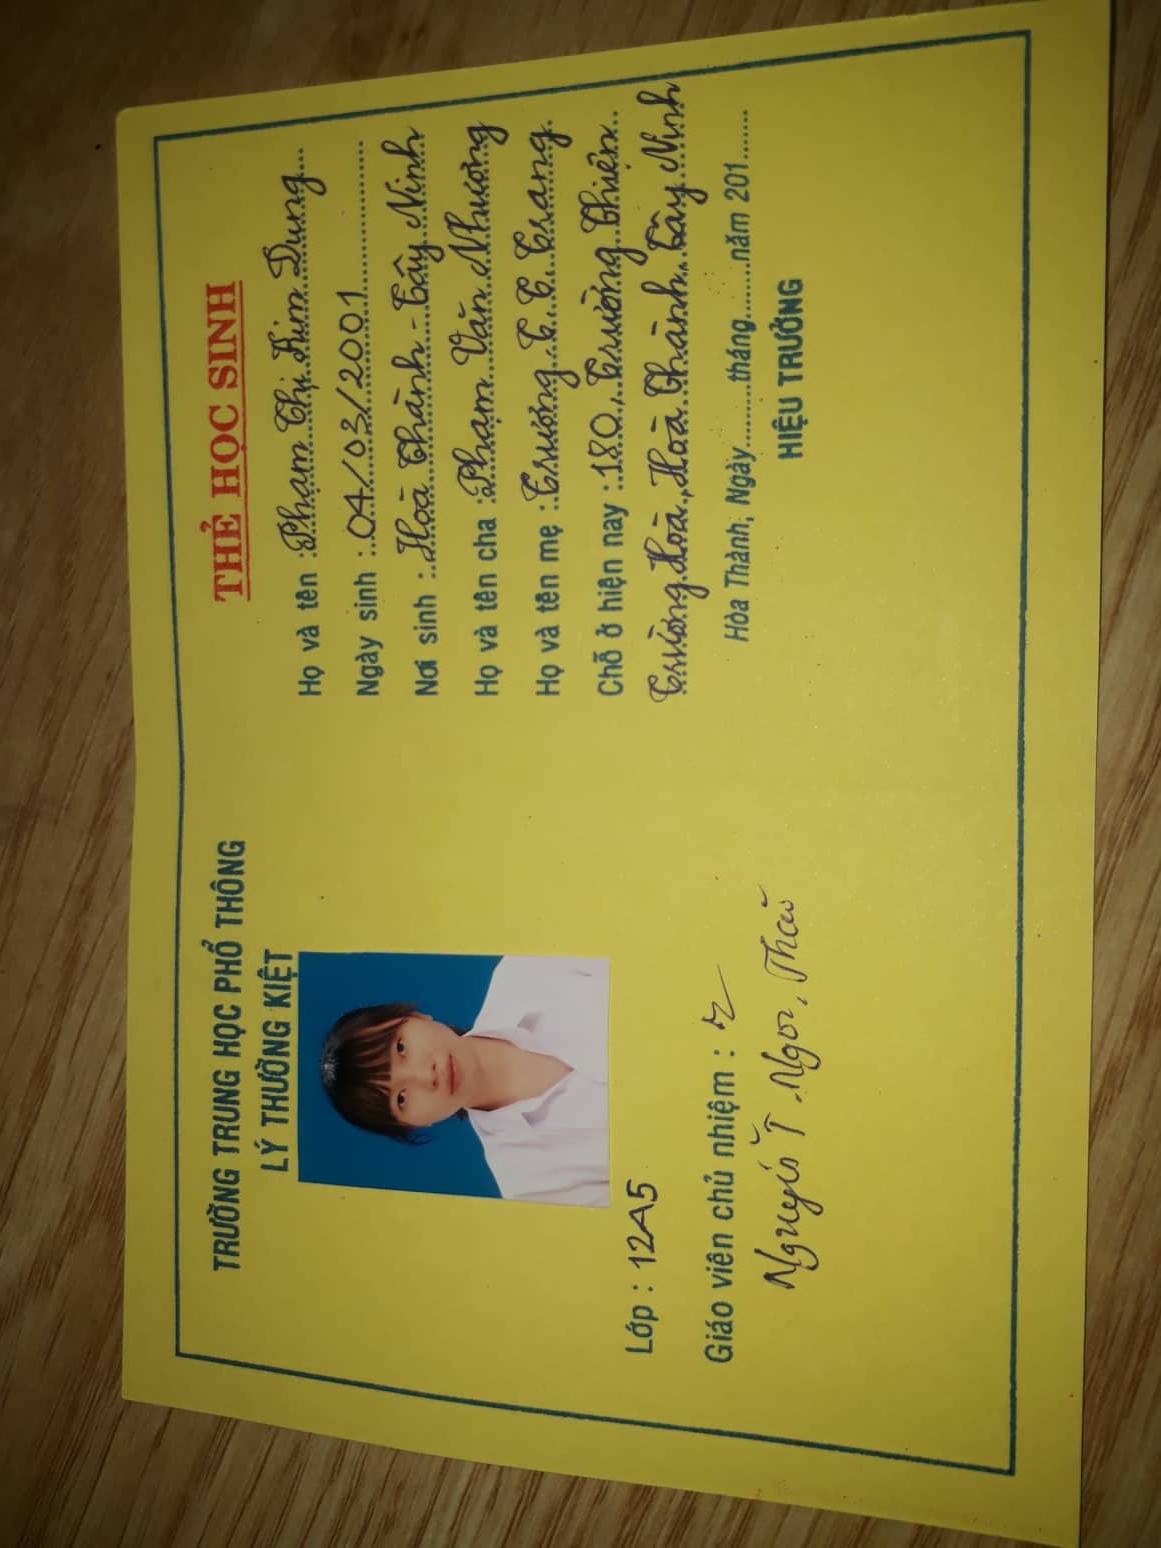 TRƯỜNG TRUNG HỌC PHỔ THÔNG
LÝ THƯỜNG KIỆT
Lớp : 12A5
Giáo viên chủ nhiệm :
T Ngọc
THẺ HỌC SINH
Họ và tên : Phạm Thị Kim Dung
Ngày sinh : 04/03/2001
Nơi sinh : Hoà Thành - Tây Ninh
Họ và tên cha : Phạm Văn Nhương
Họ và tên mẹ : Trương T. T. Trang.
Chỗ ở hiện nay : 180, Trường Thiện
Trường Hoà, Hoà Thành, Tây Ninh
Hòa Thành, Ngày.........tháng.........năm 201.......
HIỆU TRƯỞNG